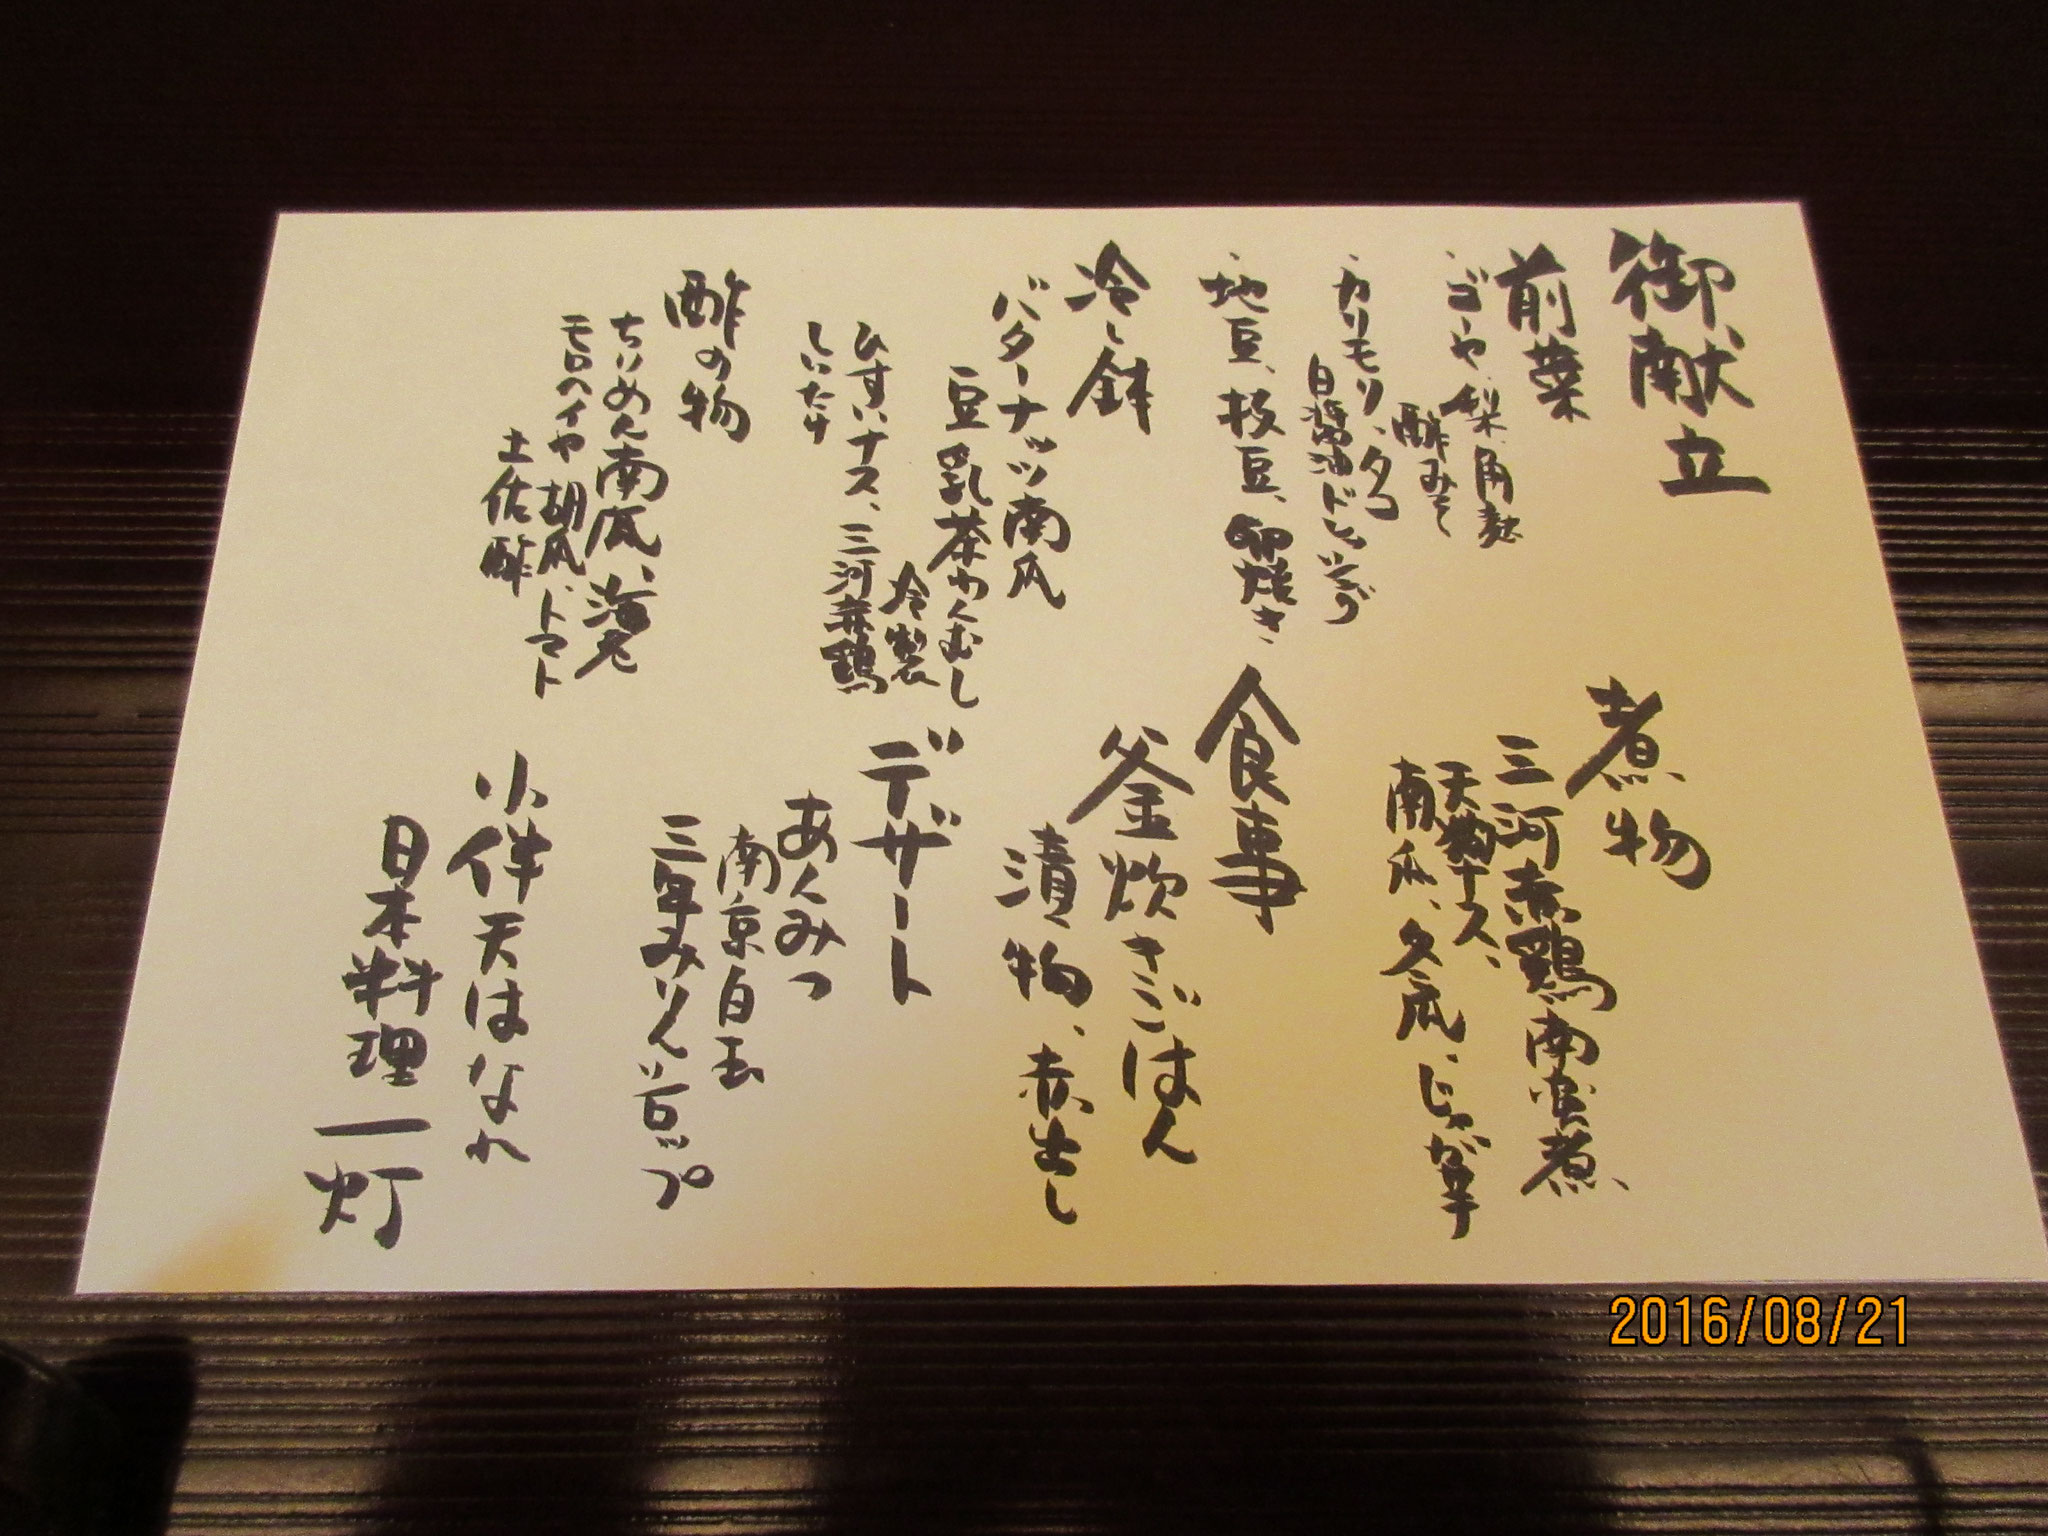 御献立
前菜
・ゴーヤ、梨、角麩
酢みそ
・カリモリ、タコ
白醤油ドレッシング
・地豆、枝豆、卵焼き
冷し鉢
バターナッツ南瓜
豆乳茶わんむし
冷製
ひすいナス、三河赤鶏
しいたけ
酢の物
ちりめん南瓜、海老
モロヘイヤ胡瓜、トマト
土佐酢
煮物
三河赤鶏南蛮煮、
天狗ナス、
南瓜、夕瓜、じゃが芋
食事
釜炊きごはん
漬物、赤出し
デザート
あんみつ
南京白玉
三年みりんシロップ
小伴天はなれ
日本料理一灯
2016/08/21